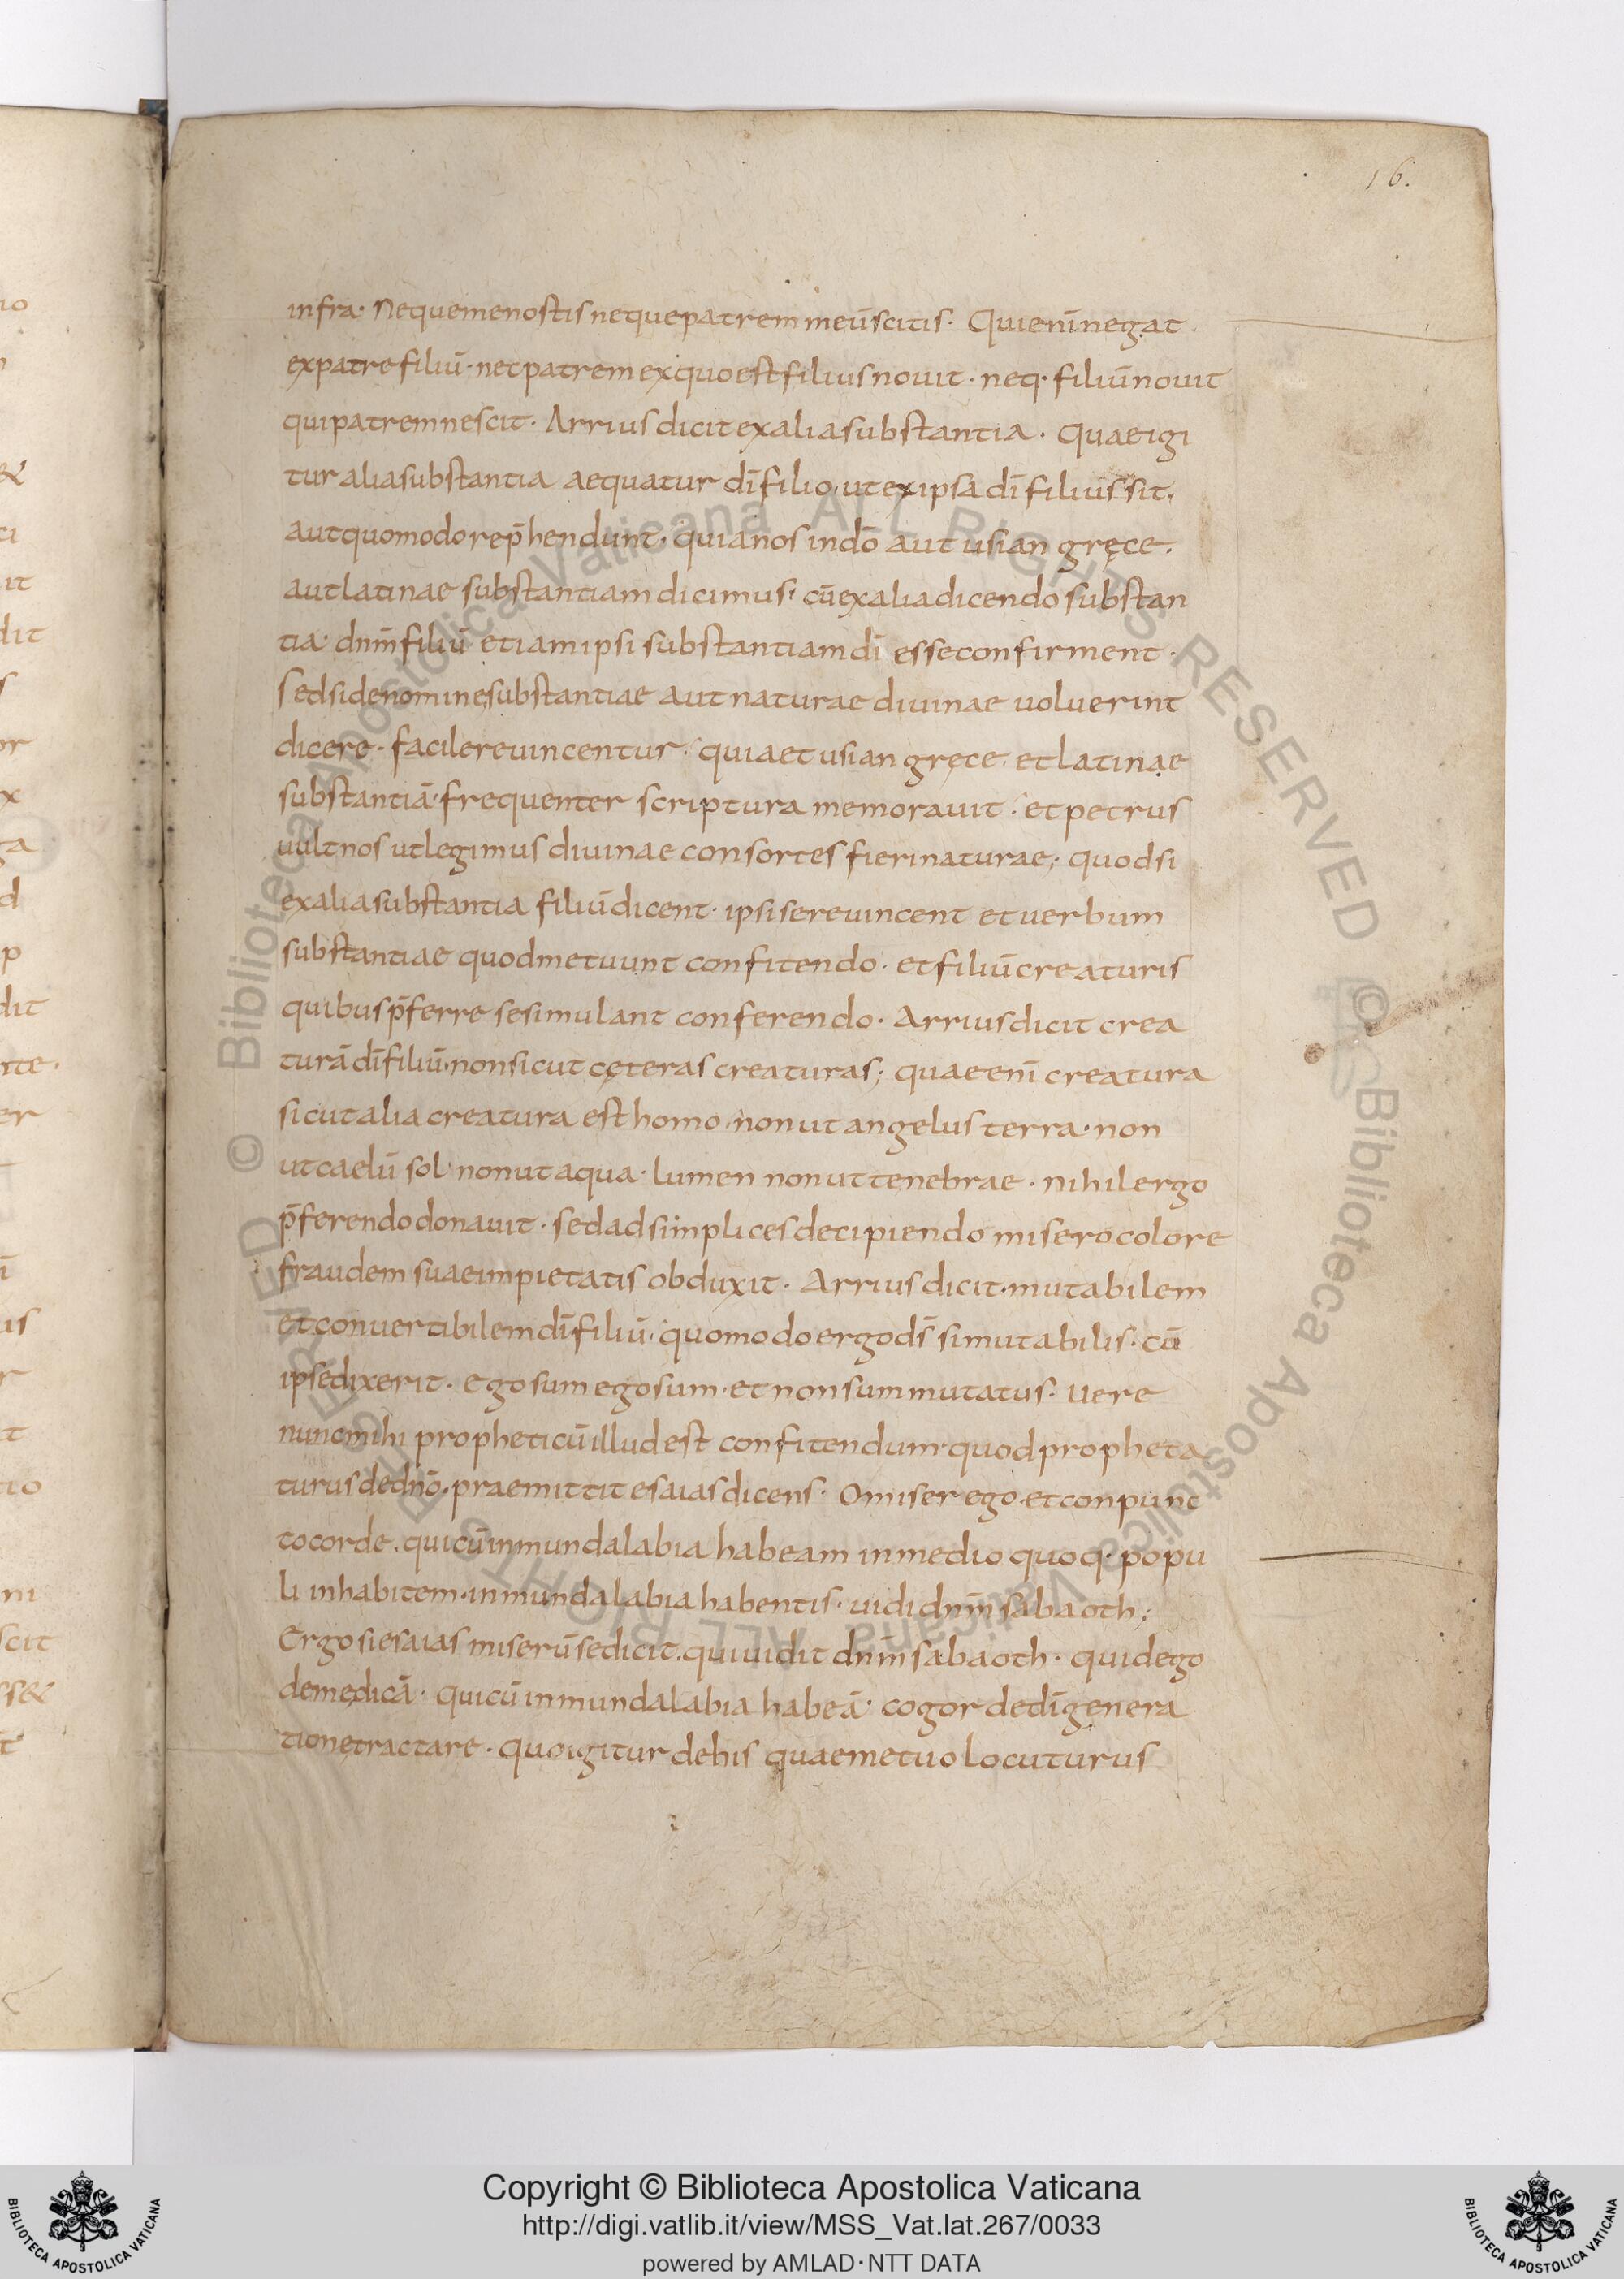 16.
infra· Neque me nostis neque patrem meū scitis· Qui enī negat
ex patre filiū· nec patrem ex quo est filius nouit· neq· filiū nouit
qui patrem nescit· Arrius dicit ex alia substantia· Quae igi
tur alia substantia aequatur dī filio, ut ex ipsa dī filius sit,
aut quomodo rep̄hendunt, quia nos in dō aut usian gręce.
aut latinae substantiam dicimus; cū ex alia dicendo substan
tia· dn̄m filiū etiam ipsi substantiam dī esse confirment·
Sed si de nomine substantiae aut naturae diuinae uoluerint
dicere· facile reuincentur· quia et usian gręce, et latinae
substantiā· frequenter scriptura memorauit· et petrus
uult nos ut legimus diuinae consortes fieri naturae; quod si
ex alia substantia filiū dicent· ipsi se reuincent et uerbum
substantiae quod metuunt confitendo· et filiū creaturis
quibus p̄ferre se simulant conferendo· Arrius dicit crea
turā dī filiū· non sicut cęteras creaturas; quae enī creatura
sicut alia creatura est homo, non ut angelus terra· non
ut caelū sol· non ut aqua· lumen non ut tenebrae· nihil ergo
p̄ferendo donauit· sed ad simplices decipiendo misero colore
fraudem suae impietatis obduxit· Arrius dicit· mutabilem
et conuertibilem dī filiū, quomodo ergo ds̄ si mutabilis· cū
ipse dixerit· ego sum ego sum· et non sum mutatus· Uere
nunc mihi propheticū illud est confitendum· quod propheta
turus de dn̄o· praemittit esaias dicens· O miser ego· et conpunc
to corde· qui cū inmunda labia habeam in medio quoq· popu
li inhabitem· inmunda labia habentis· uidi dn̄m sabaoth;
Ergo si esaias miserū se dicit· qui uidit dn̄m sabaoth· quid ego
de me dicā· qui cū inmunda labia habeā· cogor de dī genera
tione tractare· quo igitur de his quae metuo locuturus
© Biblioteca Apostolica Vaticana ALL RIGHTS RESERVED
© Biblioteca Apostolica Vaticana ALL RIGHTS RESERVED
Copyright © Biblioteca Apostolica Vaticana
http://digi.vatlib.it/view/MSS_Vat.lat.267/0033
powered by AMLAD · NTT DATA
BIBLIOTECA APOSTOLICA VATICANA
BIBLIOTECA APOSTOLICA VATICANA